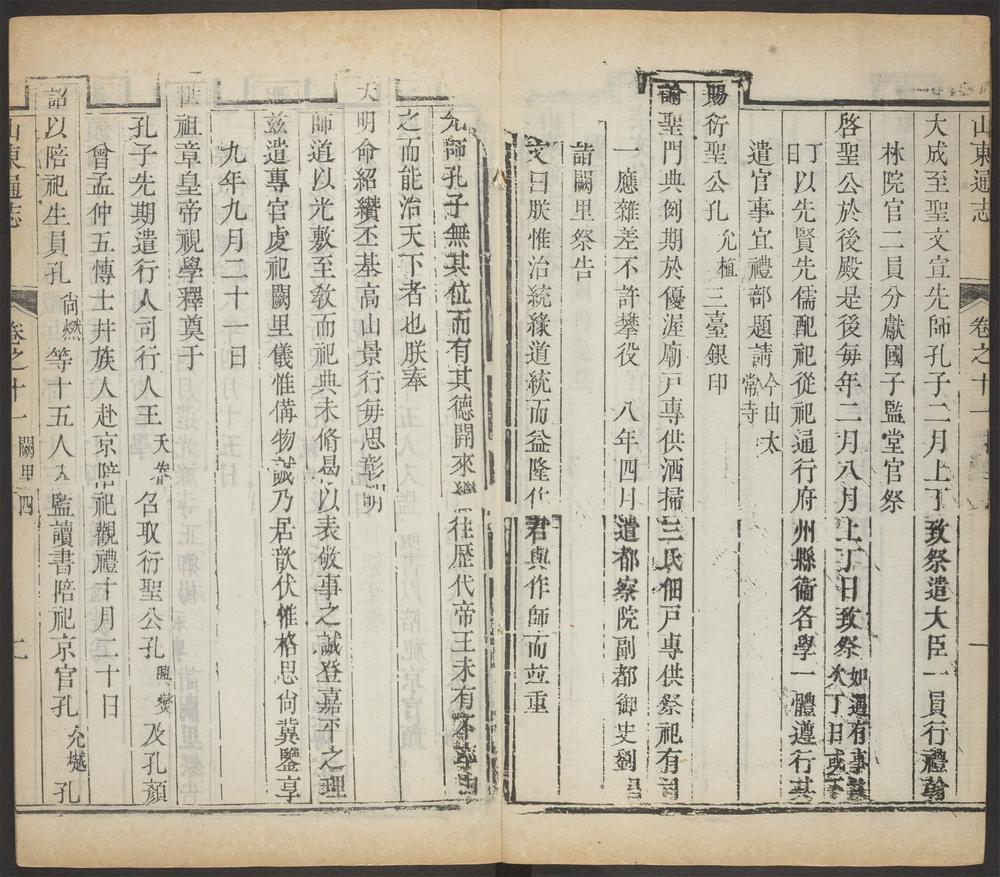 山東通志　卷之十一
大成至聖文宣先師孔子二月上丁致祭遣大臣一員行禮翰
林院官二員分獻國子監堂官祭
啓聖公於後殿是後每年二月八月上丁日致祭如遇有事
次丁日或
丁日以先賢先儒配祀從祀通行府州縣衞各學一體遵行其
遣官事宜禮部題請今由太常寺
賜衍聖公孔允植三臺銀印
諭聖門典例期於優渥廟戶專供洒掃三氏佃戶專供祭祀有司
一應雜差不許攀役　八年四月遣都察院副都御史劉
詣闕里祭告
文曰朕惟治統緣道統而益隆作君與作師而並重
先師孔子無其位而有其德開來繼往歷代帝王未有不
之而能治天下者也朕奉
天明命紹纘丕基高山景行每思彰明
師道以光敷至敎而祀典未脩曷以表敬事之誠登嘉平之理
茲遣專官虔祀闕里儀惟備物誠乃居歆伏惟格思尙冀鑒享
九年九月二十一日
世祖章皇帝視學釋奠于
孔子先期遣行人司行人王天眷召取衍聖公孔興燮及孔顏
曾孟仲五博士幷族人赴京陪祀觀禮十月二十日
詔以陪祀生員孔尙燃等十五人入監讀書陪祀京官孔允樾孔
山東通志　卷之十一　闕里　四